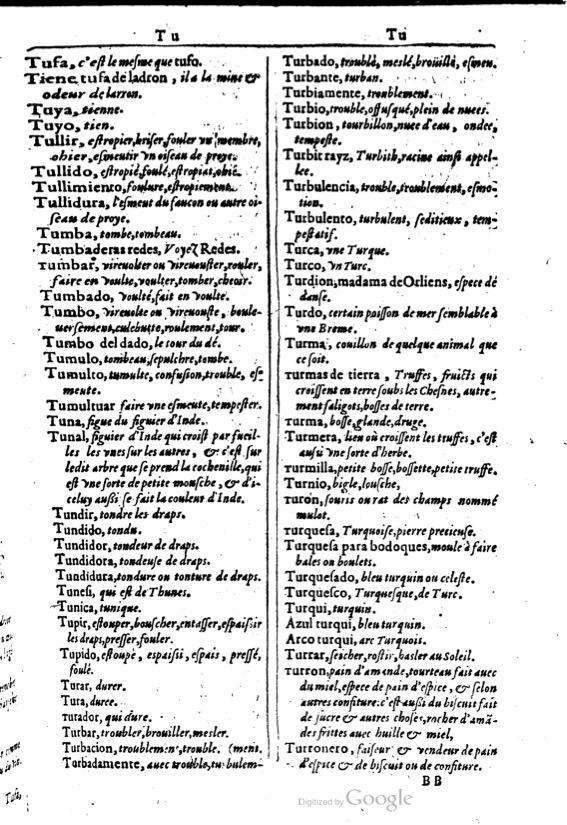 Tu
Tufa, c'est le mesme que tufo.
Tiene tufa de ladron, il a la mine &
odeur de larron.
Tuya, tienne.
Tuyo, tien.
Tullir, estropier, briser, fouler vn membre,
ohier, esmeutir vn oiseau de proye.
Tullido, estropié, foulé, estropiat, ohié.
Tullimiento, foulure, estropiement.
Tullidura, l'esmeut du faucon ou autre oi-
seau de proye.
Tumba, tombe, tombeau.
Tumbaderas redes, Voyez Redes.
Tumbar, vireuolter ou vireuouster, rouler,
faire en voulte, voulter, tomber, cheoir.
Tumbado, voulté, fait en voulte.
Tumbo, vireuolte ou vireuouste, boule-
uersement, culebutte, roulement, tour.
Tumbo del dado, le tour du dé.
Tumulo, tombeau, sepulchre, tombe.
Tumulto, tumulte, confusion, trouble, es-
meute.
Tumultuar faire vne esmeute, tempester.
Tuna, figue du figuier d'Inde.
Tunal, figuier d'Inde qui croist par fueil-
les les vnes sur les autres, & c'est sur
ledit arbre que se prend la cochenille, qui
est vne sorte de petite mousche, & d'i-
celuy aussi se fait la couleur d'Inde.
Tundir, tondre les draps.
Tundido, tondu.
Tundidor, tondeur de draps.
Tundidora, tondeuse de draps.
Tundidura, tondure ou tonture de draps.
Tunesi, qui est de Thunes.
Tunica, tunique.
Tupir, estouper, bouscher, entasser, espaissir
les draps, presser, fouler.
Tupido, estoupé, espaissi, espais, pressé,
foulé.
Turar, durer.
Tura, duree.
Turador, qui dure.
Turbar, troubler, brouiller, mesler.
Turbacion, troublement, trouble. (ment.
Turbadamente, auec trouble, turbulem-
Tu
Turbado, troublé, meslé, broüillé, esmeu.
Turbante, turban.
Turbiamente, troublement.
Turbio, trouble, offusqué, plein de nuees.
Turbion, tourbillon, nuee d'eau, ondee,
tempeste.
Turbit rayz, Turbith, racine ainsi appel-
lee.
Turbulencia, trouble, troublement, esmo-
tion.
Turbulento, turbulent, seditieux, tem-
pestatif.
Turca, vne Turque.
Turco, vn Turc.
Turdion, madama de Orliens, espece dé
danse.
Turdo, certain poisson de mer semblable à
vne Breme.
Turma, couillon de quelque animal que
ce soit.
Turmas de tierra, Truffes, fruicts qui
croissent en terre soubs les Chesnes, autre-
ment saligots, bosses de terre.
Turma, bosse, glande, druge.
Turmera, lieu où croissent les truffes, c'est
aussi vne sorte d'herbe.
Turmilla, petite bosse, bossette, petite truffe.
Turnio, bigle, lousche,
Turon, souris ou rat des champs nommé
mulot.
Turquesa, Turquoise, pierre precieuse.
Turquesa para bodoques, moule à faire
bales ou boulets.
Turquesado, bleu turquin ou celeste.
Turquesco, Turquesque, de Turc.
Turqui, turquin.
Azul turqui, bleu turquin.
Arco turqui, arc Turquois.
Turrar, seicher, rostir, hasler au Soleil.
Turron, pain d'amande, tourteau fait auec
du miel, espece de pain d'espice, & selon
autres confiture: c'est aussi du biscuit fait
de sucre & autres choses, rocher d'amã-
des frittes auec huille & miel,
Turronero, faiseur & vendeur de pain
d'espice & de biscuit ou de confiture.
BB
Digitized by Google
Tufa,